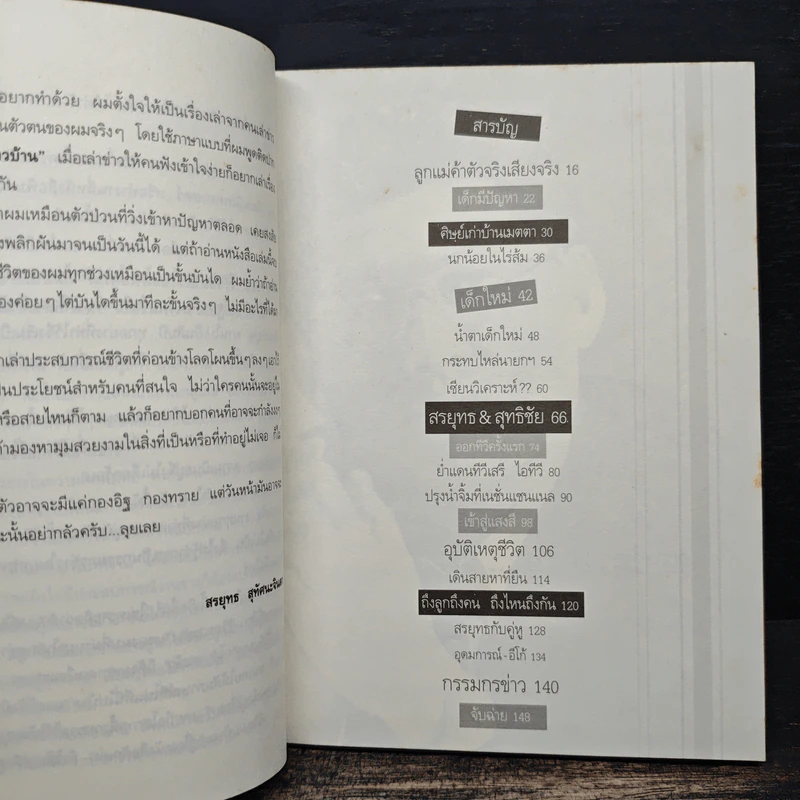 อยากทำด้วย ผมตั้งใจให้เป็นเรื่องเล่าจากคนเล่าข่าว
นตัวตนของผมจริงๆ โดยใช้ภาษาแบบที่ผมพูดติดปาก
าวบ้าน" เมื่อเล่าข่าวให้คนฟังเข้าใจง่ายก็อยากเล่าเรื่อง
กัน
าผมเหมือนตัวป่วนที่วิ่งเข้าหาปัญหาตลอด เคยสงสัย
งพลิกผันมาจนเป็นวันนี้ได้ แต่ถ้าอ่านหนังสือเล่มนี้
ชีวิตของผมทุกช่วงเหมือนเป็นขั้นบันได ผมย้ำว่าถ้าอ่าน
องค่อยๆ ไต่บันไดขึ้นมาทีละขั้นจริงๆ ไม่มีอะไรที่ได้มา
กเล่าประสบการณ์ชีวิตที่ค่อนข้างโลดโผนขึ้นๆ ลงๆ
ป็นประโยชน์สำหรับคนที่สนใจ ไม่ว่าใครคนนั้นจะอยู่ใน
หรือสายไหนก็ตาม แล้วก็อยากบอกคนที่อาจจะกำลัง
ถ้ามองหามุมสวยงามในสิ่งที่เป็นหรือที่ทำอยู่ไม่เจอ ก็
ตัวอาจจะมีแค่กองอิฐ กองทราย แต่วันหน้ามันอาจจะ
ะนั้นอย่ากลัวครับ...ลุยเลย
สรยุทธ สุทัศนะจินดา
สารบัญ
ลูกแม่ค้าตัวจริงเสียงจริง 16
เด็กมีปัญหา 22
ศิษย์เก่าบ้านเมตตา 30
นกน้อยในไร่ส้ม 36
เด็กใหม่ 42
น้ำตาเด็กใหม่ 48
กระทบไหล่นายกฯ 54
เซียนวิเคราะห์?? 60
สรยุทธ & สุทธิชัย 66
ออกทีวีครั้งแรก 74
ย่ำแดนทีวีเสรี ไอทีวี 80
ปรุงน้ำจิ้มที่เนชั่นแชนแนล 90
เข้าสู่แสงสี 98
อุบัติเหตุชีวิต 106
เดินสายหาที่ยืน 114
ถึงลูกถึงคน ถึงไหนถึงกัน 120
สรยุทธกับคู่หู 128
อุดมการณ์-อีโก้ 134
กรรมกรข่าว 140
จับฉ่าย 148